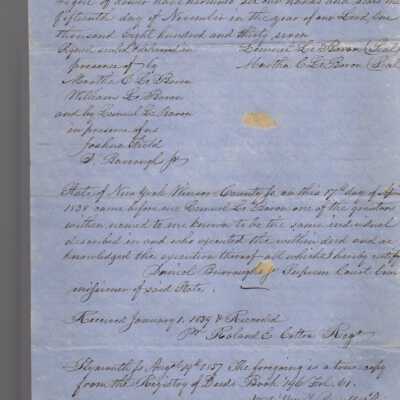 right of dower have hereunto set our hands and seals this
fifteenth day of November in the year of our Lord one
thousand eight hundred and thirty seven
Signed sealed & delivered in Lemuel Le Baron (Seal
presence of by Martha C Le Baron (Seal
Martha C Le Baron
William Le Baron
and by Lemuel Le Baron
in presence of us
Joshua Field
S. Burroughs Jr
State of New York County Ss. on this 17th day of Apr
1838 came before me Lemuel Le Baron one of the grantors
within named to me known to be the same individual
described in and who executed the within deed and ac
knowledged the execution thereof all which I hereby certify
Burroughs Jr Supreme Court Com
missioner of said State.
Received January 1. 1839 & Recorded
Pr Roland E Cotton Regr
Plymouth Ss Augt 1857 The foregoing is a true copy
from the Registry of Deeds Book 196 Fol. 61.